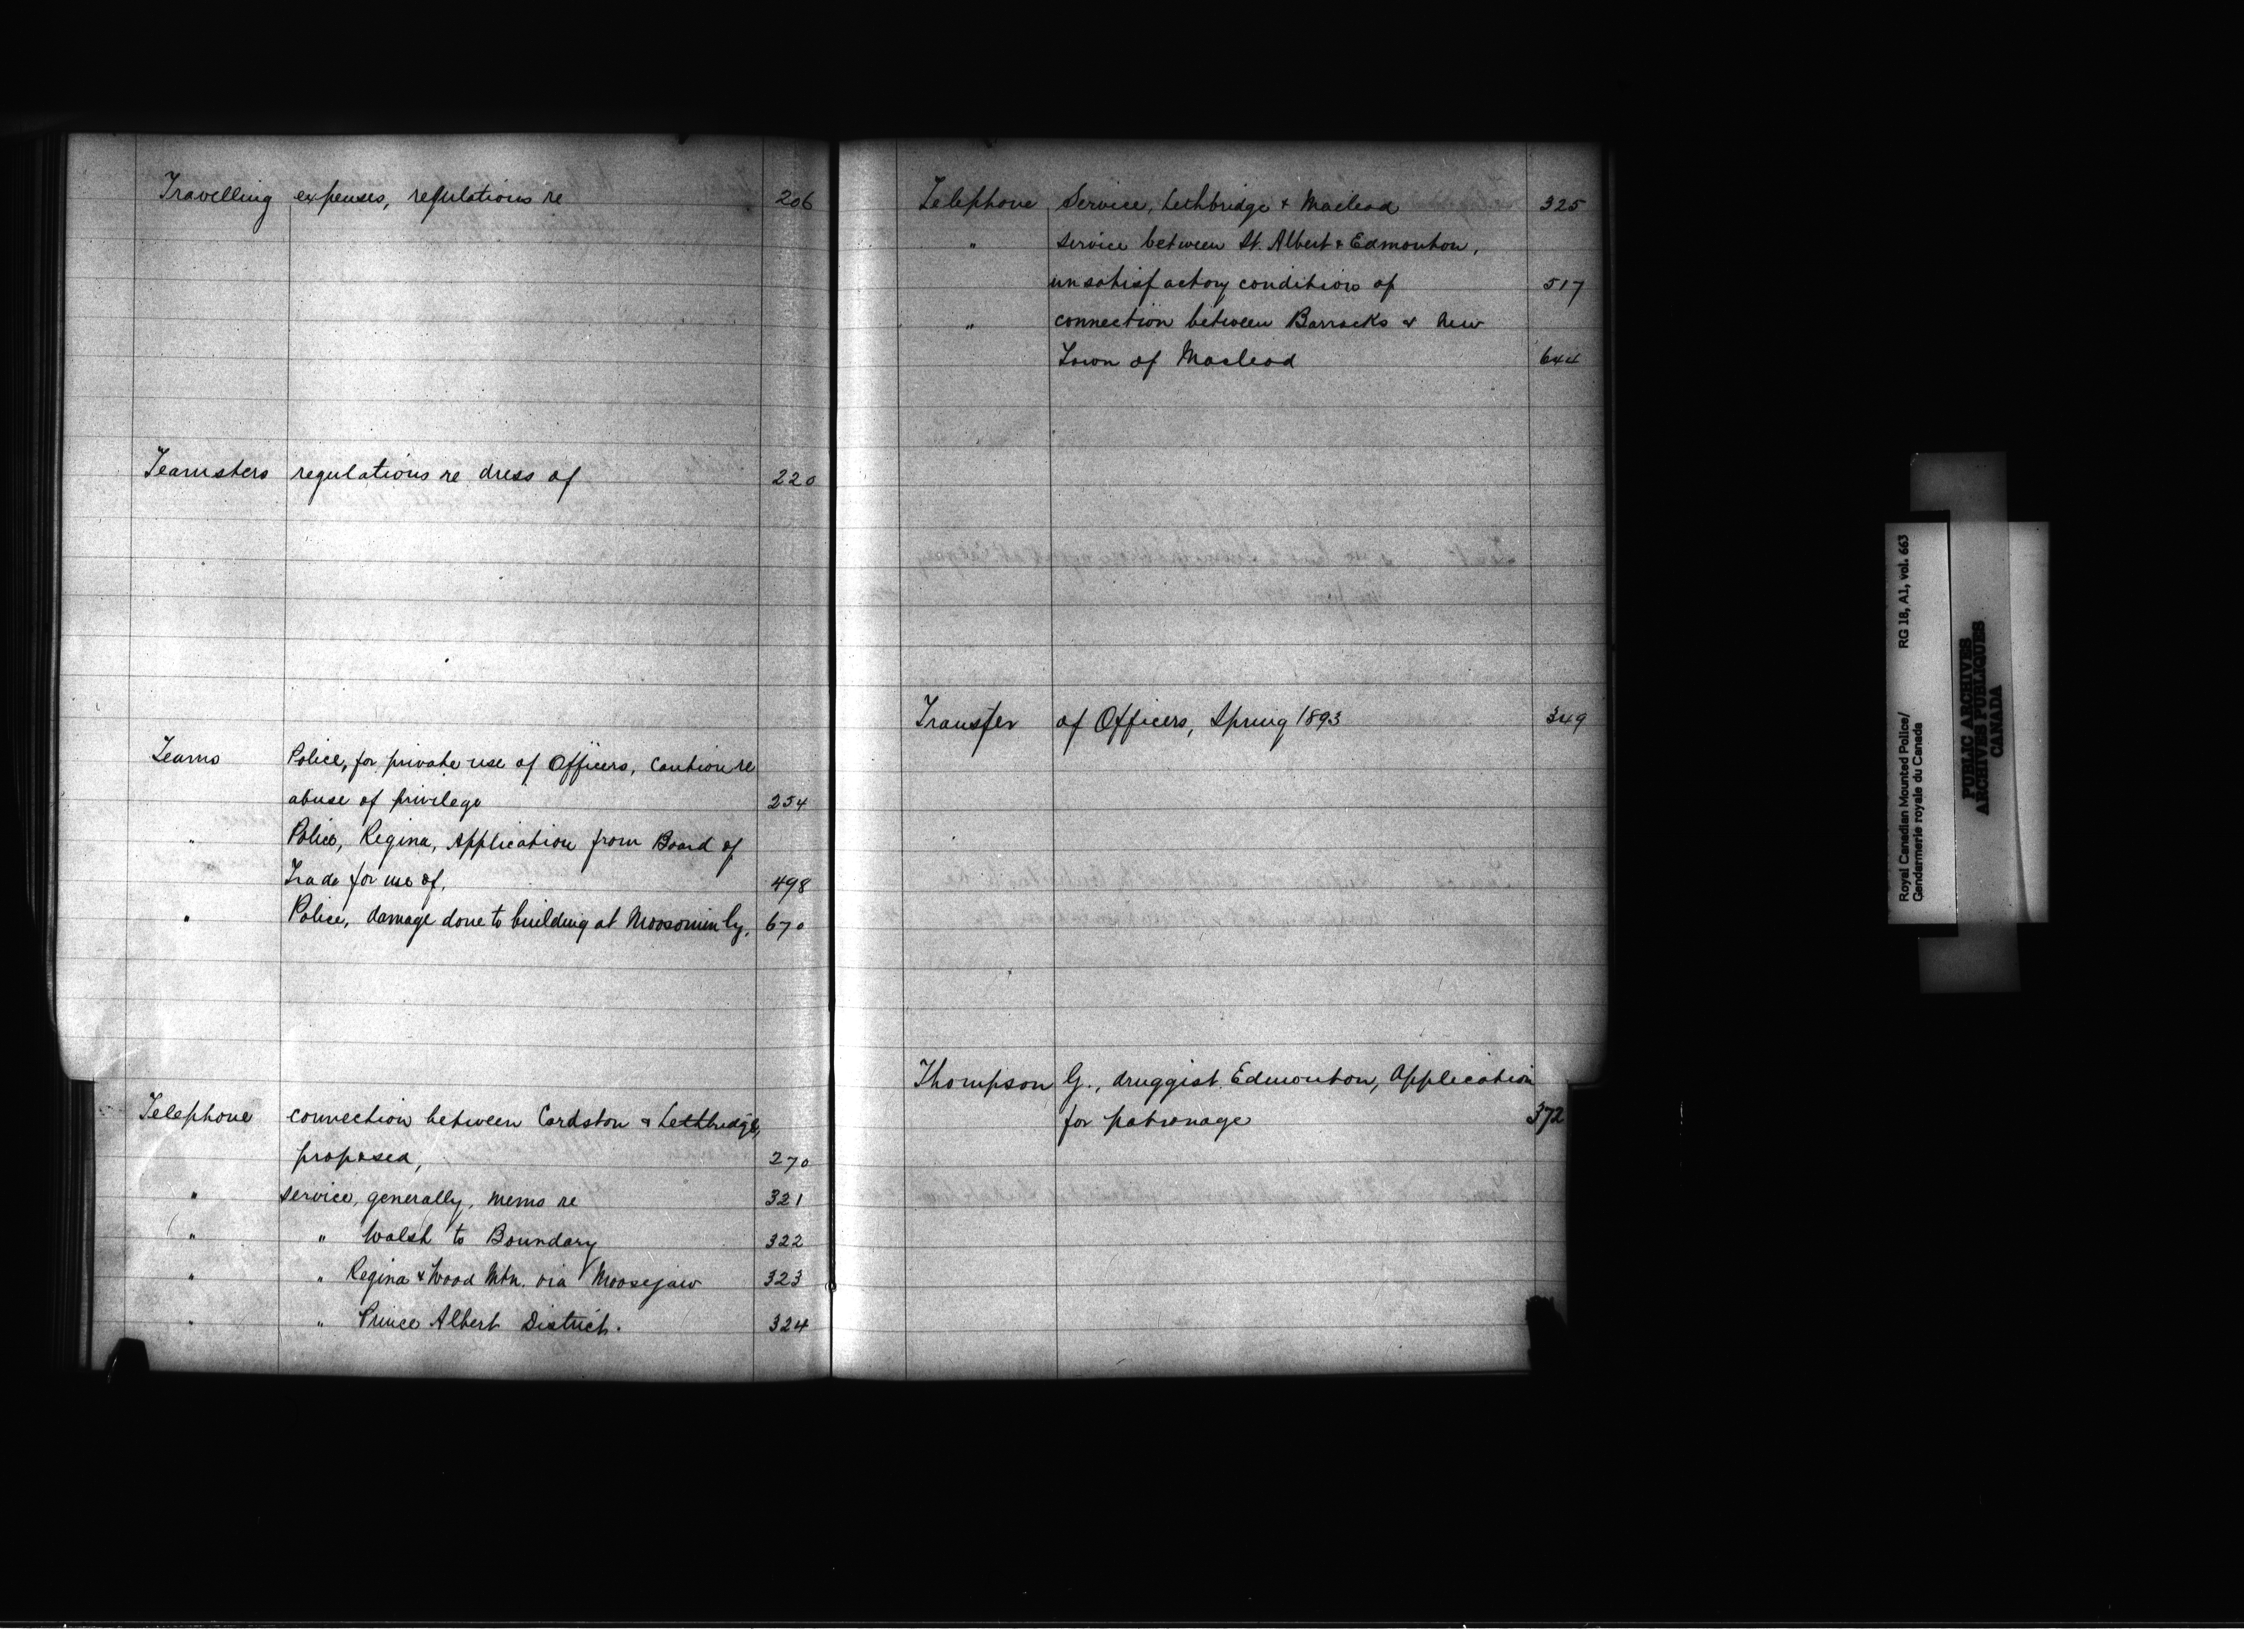 Travelling expenses, regulations re 206
Teamsters regulations re dress of 220
Teams Police, for private use of Officers, Caution re
abuse of privilege 254
" Police, Regina, Application from Board of
Trade for use of, 498
" Police, damage done to building at Moosomin by, 670
Telephone connection between Cardston & Lethbridge,
proposed, 270
" service, generally, memo re 321
" " Walsh to Boundary 322
" " Regina & Wood Mtn. via Moosejaw 323
" " Prince Albert District. 324
Telephone Service, Lethbridge & Macleod 325
" service between St. Albert & Edmonton,
unsatisfactory conditions of 517
" connection between Barracks & new
Town of Macleod 644
Transfer of Officers, Spring 1893 349
Thompson G., druggist. Edmonton, Application
for patronage 372
Royal Canadian Mounted Police/ RG 18, A1, vol. 663
Gendarmerie royale du Canada
PUBLIC ARCHIVES
ARCHIVES PUBLIQUES
CANADA